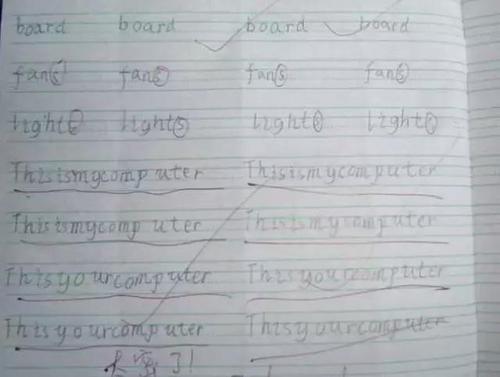 board board board board
fans fans fans fans
lights lights lights lights
Thisismycomputer Thisismycomputer
Thisismycomp uter Thisismycomputer
Thisyourcomputer Thisyourcomputer
Thisyourcomputer Thisyourcomputer
太 了!